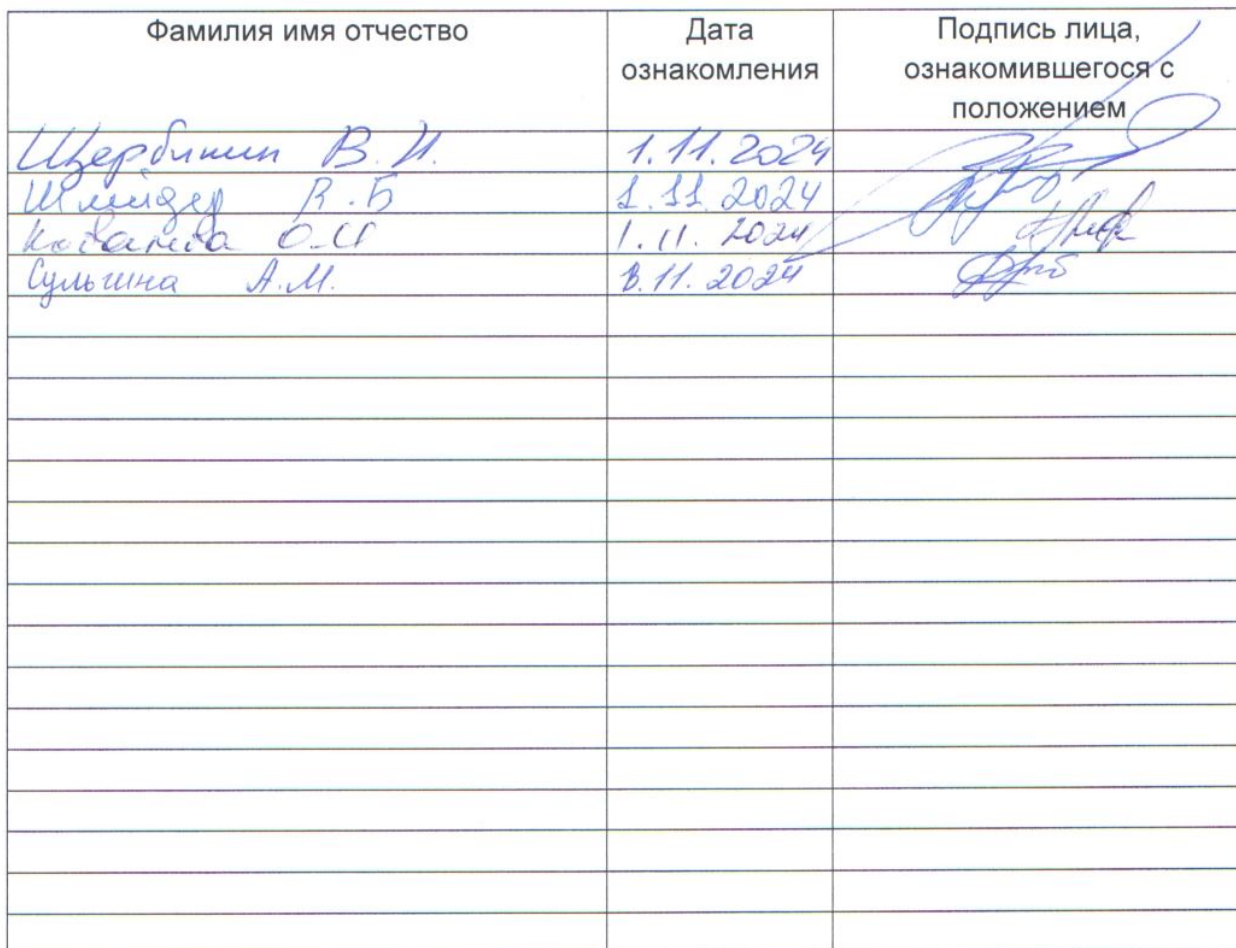 Фамилия имя отчество
Дата ознакомления
Подпись лица, ознакомившегося с положением
Щербинин В. И. 1.11.2024
Шнейдер В.Б 1.11.2024
О.И 1.11.2024
Сульгина А.М. 8.11.2024